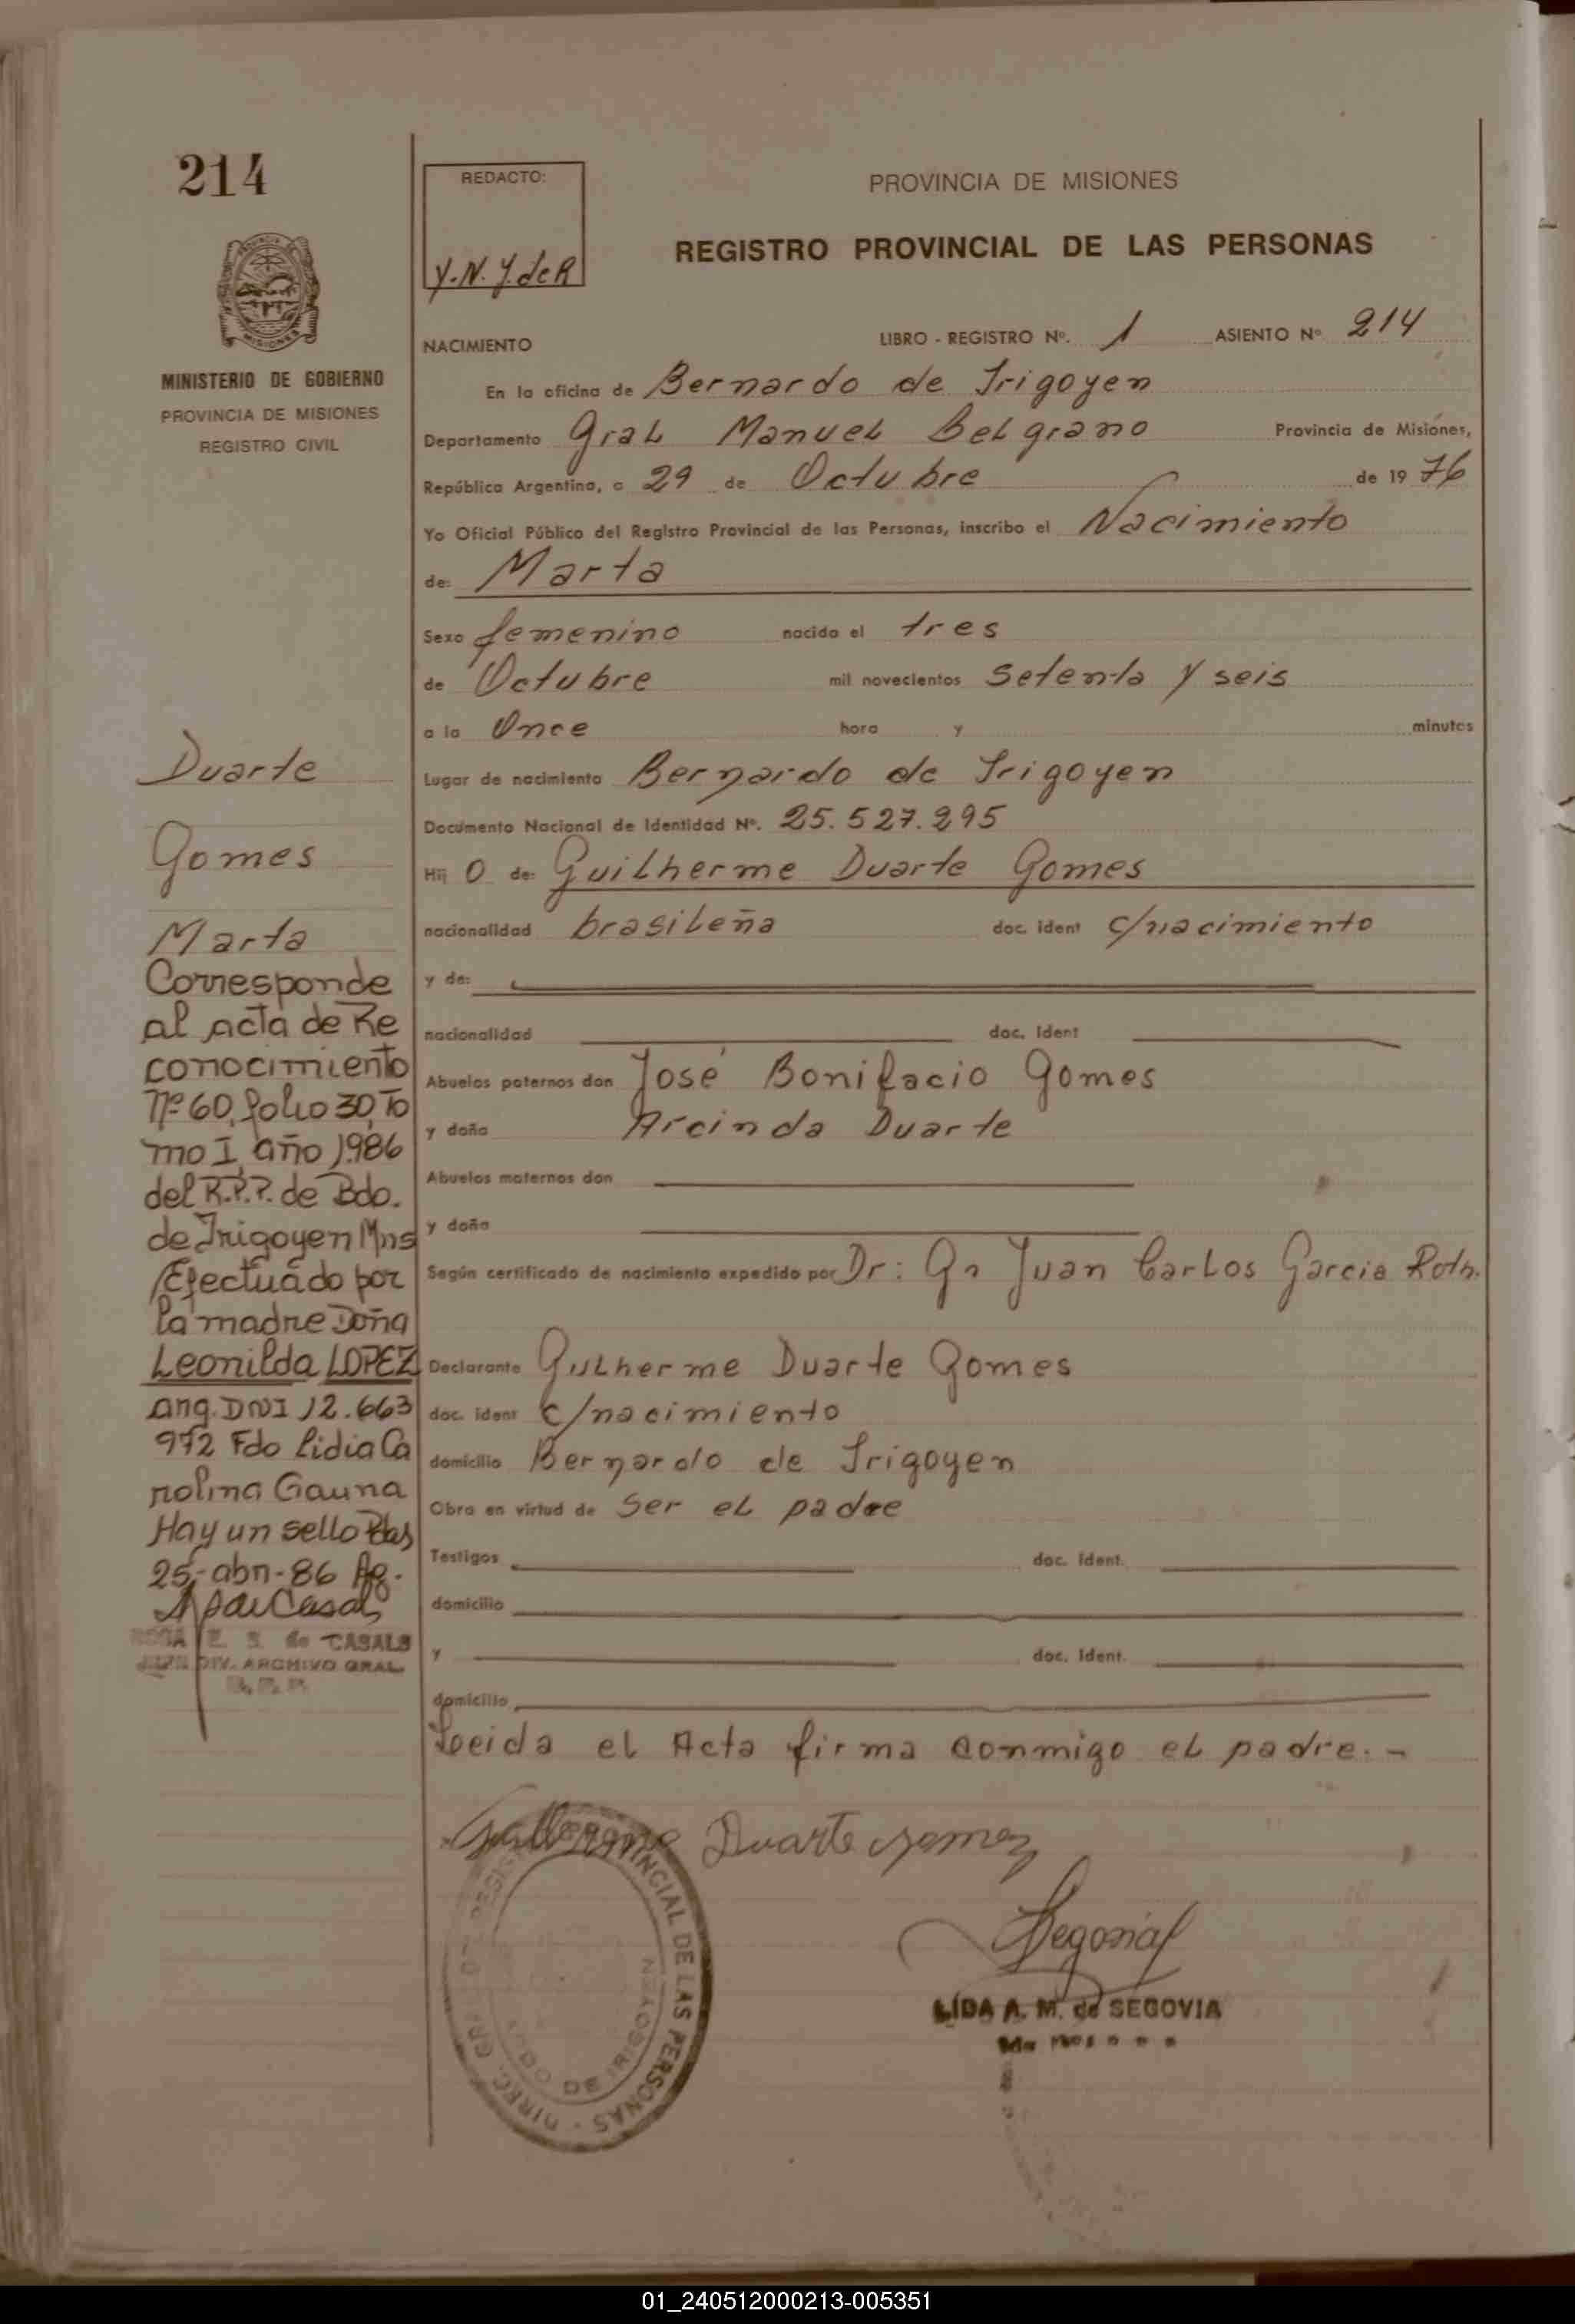 214
MINISTERIO DE GOBIERNO
PROVINCIA DE MISIONES
REGISTRO CIVIL
Duarte
Gomes
Marta
Corresponde
al acta de Re
conocimiento
Nº 60, folio 30, To
mo I, año 1986
del R.P.P. de Bdo.
de Irigoyen Mns
Efectuado por
la madre Doña
Leonilda LOPEZ
arg. DNI 12.663
972 Fdo Lidia Ca
rolina Gauna
Hay un sello Pdas
25-abr-86
de CASALS
DIV. ARCHIVO GRAL.
REDACTO:
Y.N.Y. de R
PROVINCIA DE MISIONES
REGISTRO PROVINCIAL DE LAS PERSONAS
NACIMIENTO LIBRO - REGISTRO Nº. 1 ASIENTO Nº 214
En la oficina de Bernardo de Irigoyen
Departamento Gral Manuel Belgrano Provincia de Misiones,
República Argentina, a 29 de Octubre de 19 76
Yo Oficial Público del Registro Provincial de las Personas, inscribo el Nacimiento
de: Marta
Sexo femenino nacido el tres
de Octubre mil novecientos setenta y seis
a la Once hora y minutos
Lugar de nacimiento Bernardo de Irigoyen
Documento Nacional de Identidad Nº. 25.527.295
Hij O de: Guilherme Duarte Gomes
nacionalidad brasileña doc. ident c/nacimiento
y de:
nacionalidad doc. ident
Abuelos paternos don José Bonifacio Gomes
y doña Arcinda Duarte
Abuelos maternos don
y doña
Según certificado de nacimiento expedido por Dr: Juan Carlos Garcia Roth.
Declarante Guilherme Duarte Gomes
doc. ident c/nacimiento
domicilio Bernardo de Irigoyen
Obra en virtud de ser el padre
Testigos doc. ident.
domicilio
y doc. ident.
domicilio
Leida el Acta firma conmigo el padre.-
Duarte Gomez
DIREC. GRAL. REGISTRO PROVINCIAL DE LAS PERSONAS
BDO DE IRIGOYEN
LIDA A. M. de SEGOVIA
01_240512000213-005351